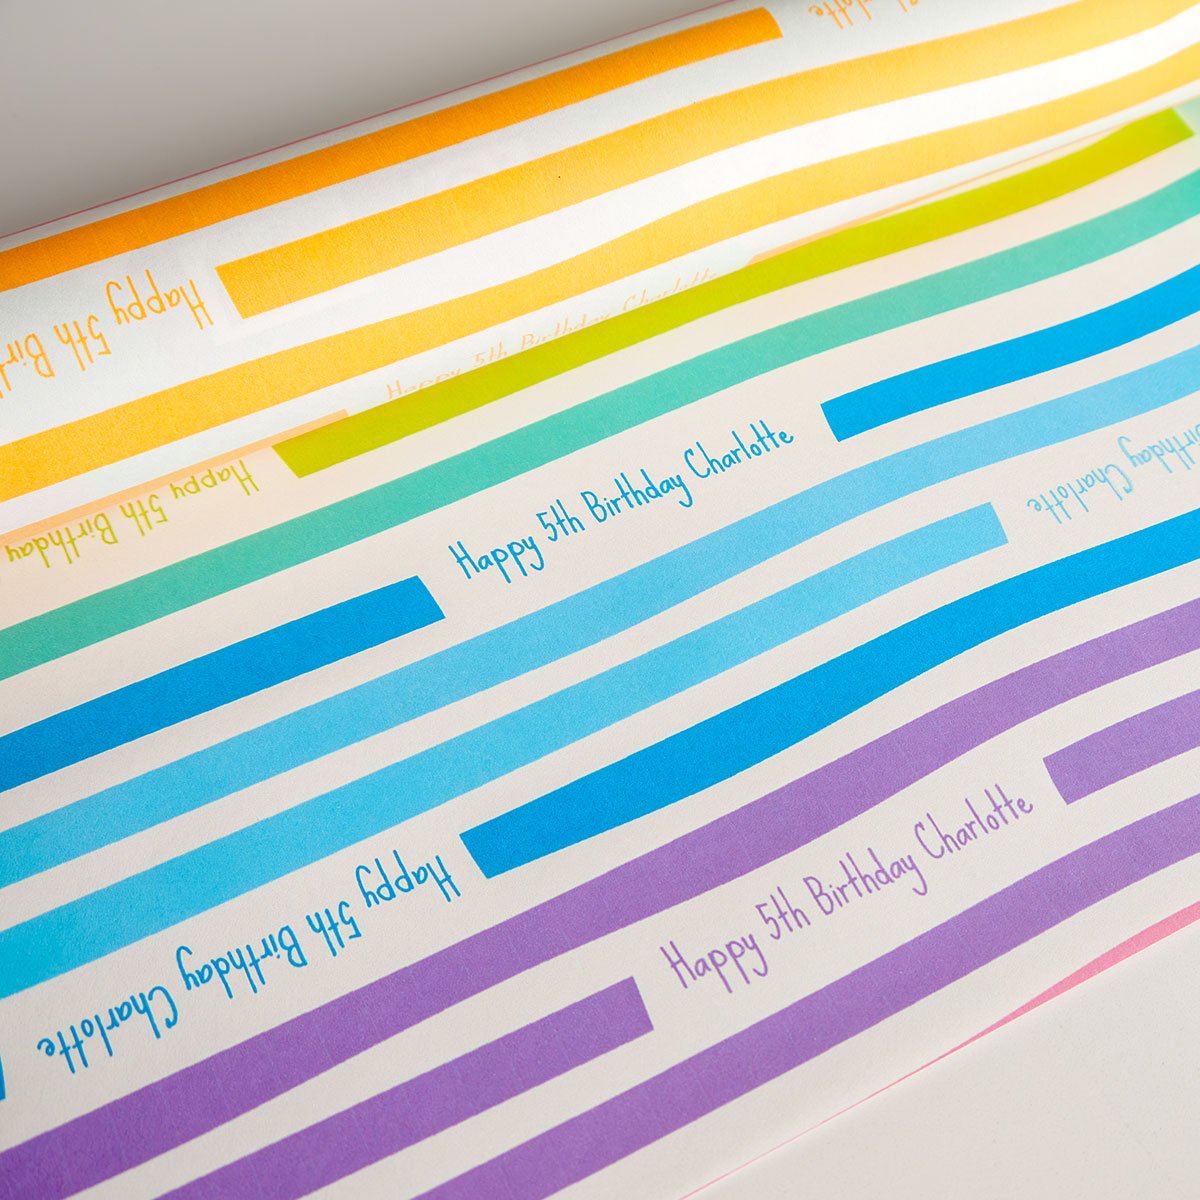 Charlotte
Happy 5th Birt
Happy 5th Birthday Charlotte
Happy 5th Birthday
Happy 5th Birthday Charlotte
Birthday Charlotte
Happy 5th Birthday Charlotte
Happy 5th Birthday Charlotte